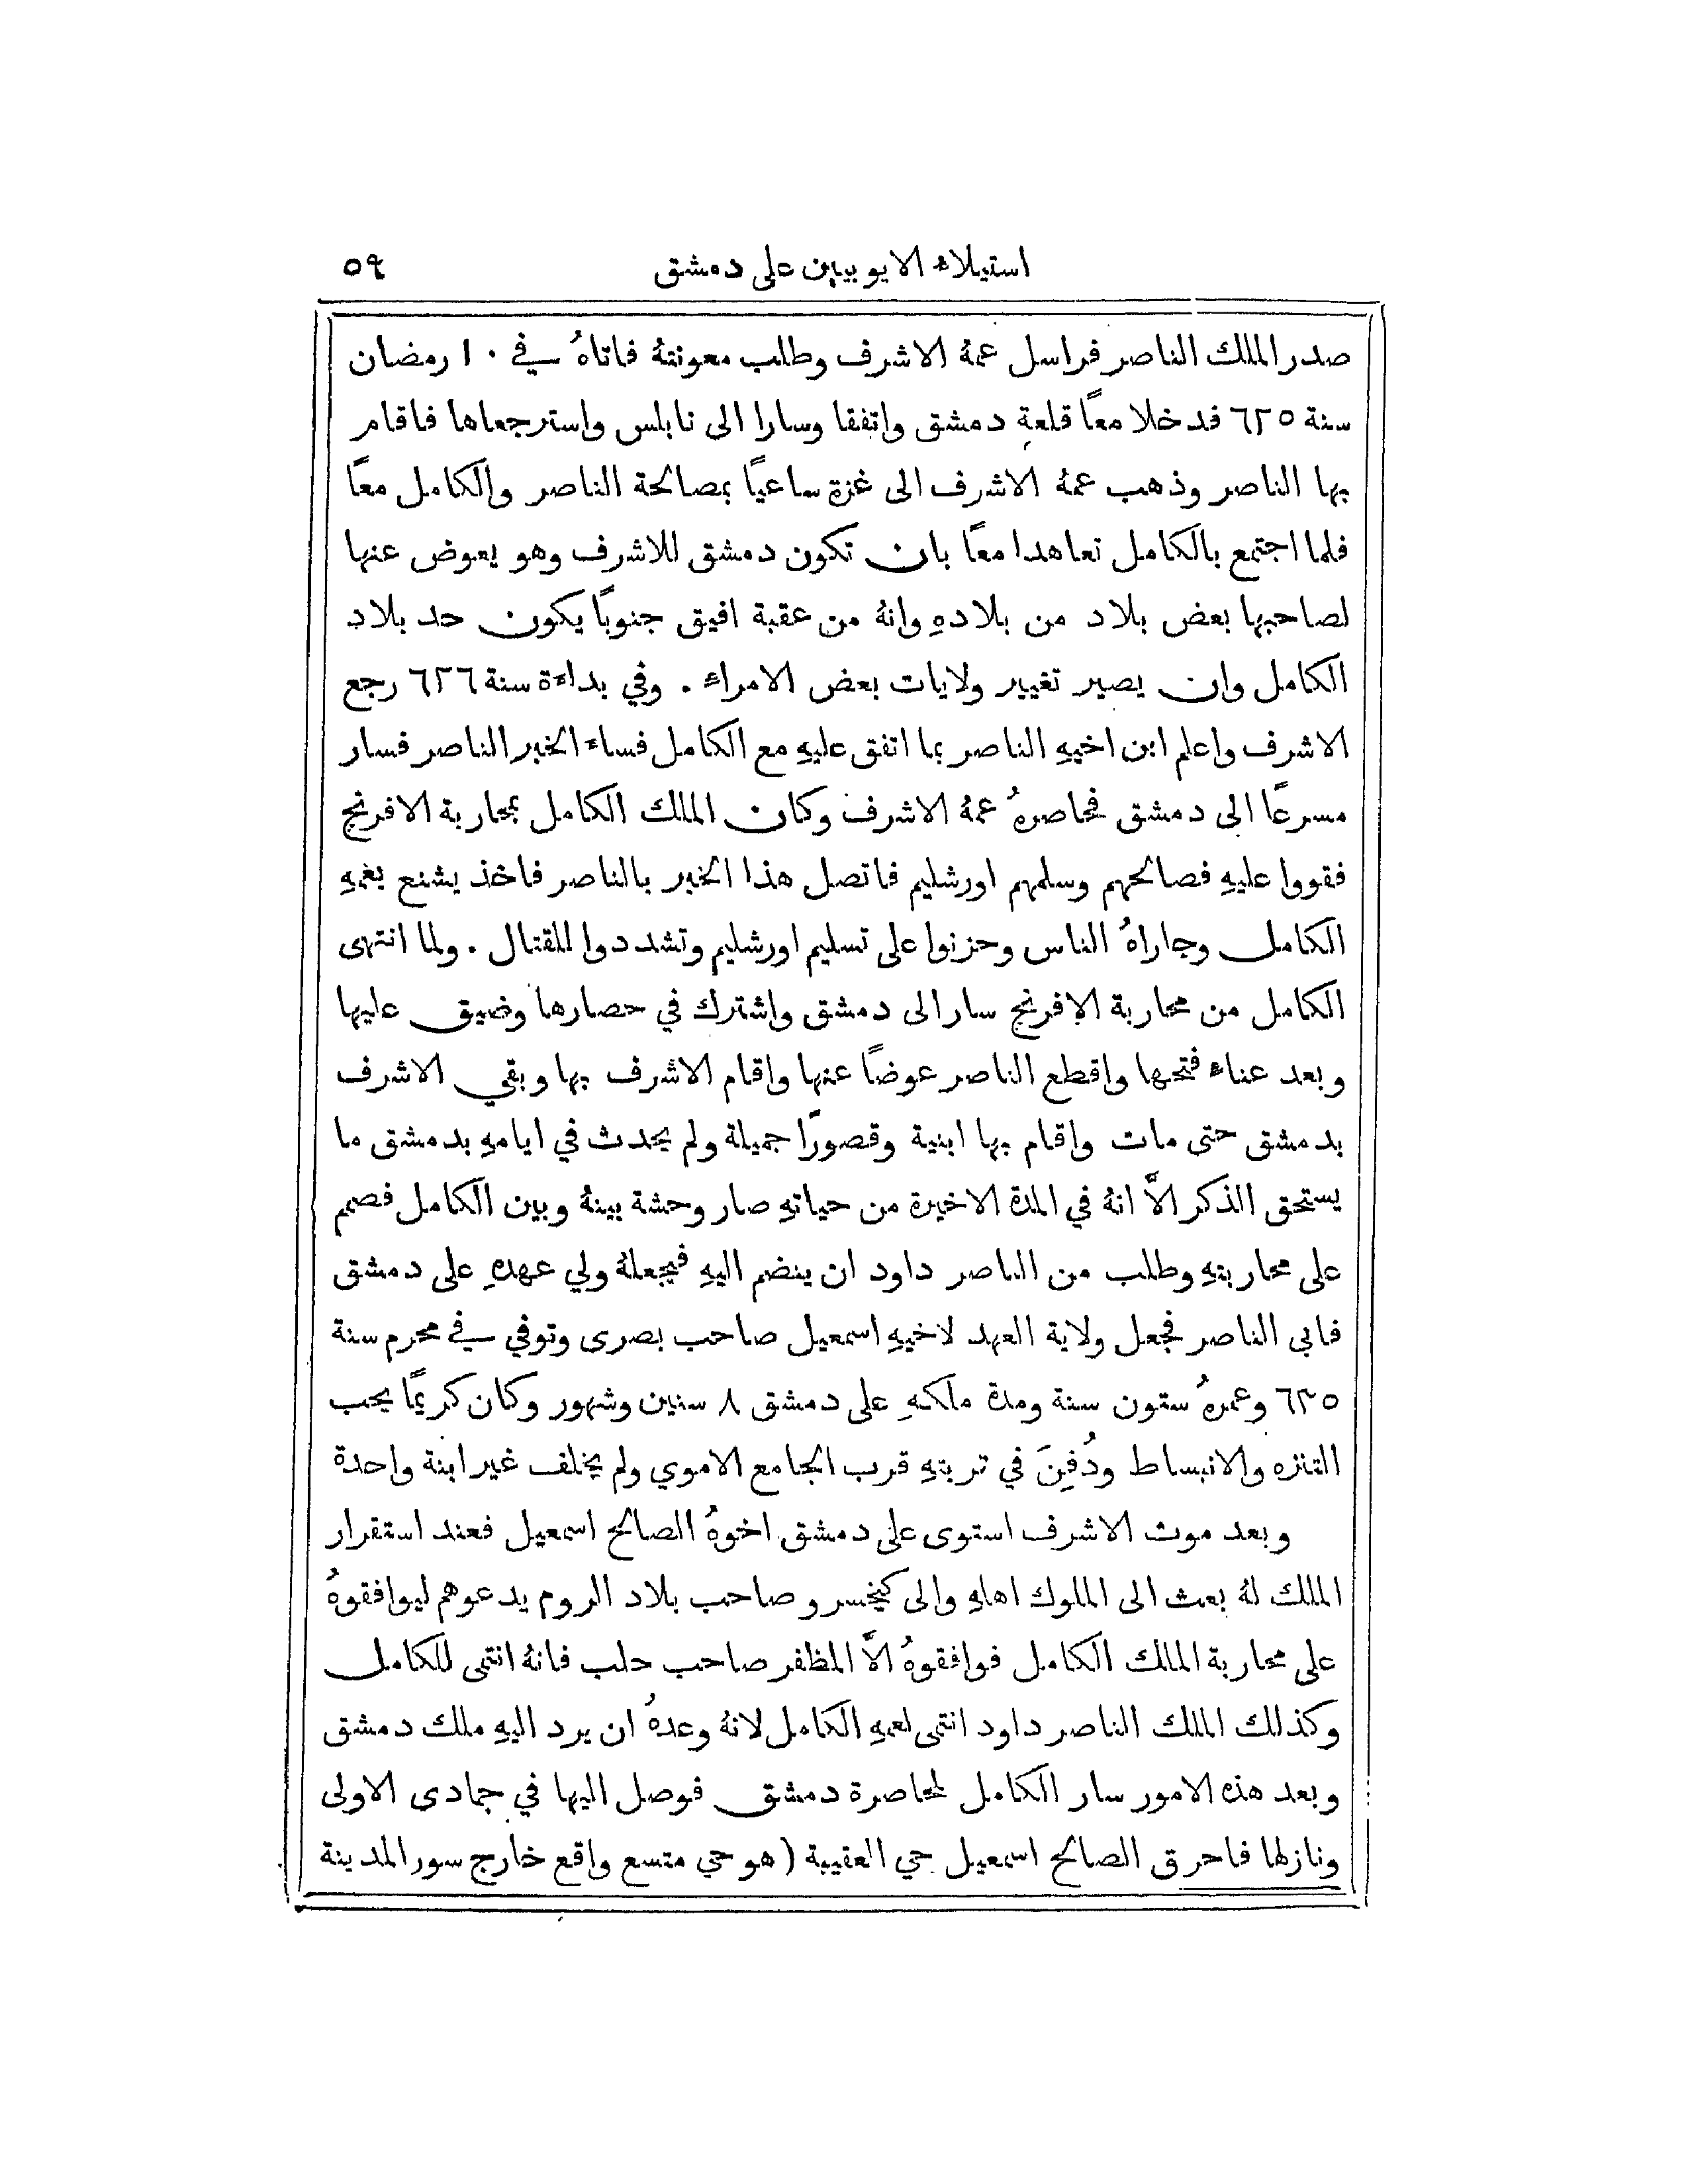 استيلاء الايوبيين على دمشق ٥٩
صدر الملك الناصر فراسل عمهُ الاشرف وطلب معونتهُ فاتاهُ في ١٠ رمضان
سنة ٦٢٥ فدخلا معًا قلعة دمشق واتفقا وسارا الى نابلس واسترجعاها فاقام
بها الناصر وذهب عمهُ الاشرف الى غزة ساعيًا بمصالحة الناصر والكامل معًا
فلما اجتمع بالكامل تعاهدا معًا بان تكون دمشق للاشرف وهو يعوض عنها
لصاحبها بعض بلاد من بلادهِ وانهُ من عقبة افيق جنوبًا يكون حد بلاد
الكامل وان يصير تغيير ولايات بعض الامراء . وفي بداءة سنة ٦٢٦ رجع
الاشرف واعلم ابن اخيهِ الناصر بما اتفق عليهِ مع الكامل فساء الخبر الناصر فسار
مسرعًا الى دمشق فحاصرهُ عمهُ الاشرف وكان الملك الكامل بمحاربة الافرنج
فقووا عليهِ فصالحهم وسلمهم اورشليم فاتصل هذا الخبر بالناصر فاخذ يشنع بعمهِ
الكامل وجاراهُ الناس وحزنوا على تسليم اورشليم وتشددوا للقتال . ولما انتهى
الكامل من محاربة الافرنج سار الى دمشق واشترك في حصارها وضيق عليها
وبعد عناء فتحها واقطع الناصر عوضًا عنها واقام الاشرف بها وبقي الاشرف
بدمشق حتى مات واقام بها ابنية وقصورًا جميلة ولم يحدث في ايامهِ بدمشق ما
يستحق الذكر الاَّ انهُ في المدة الاخيرة من حياتهِ صار وحشة بينهُ وبين الكامل فصمم
على محاربتهِ وطلب من الناصر داود ان ينضم اليهِ فيجعلهُ ولي عهدهِ على دمشق
فابى الناصر فجعل ولاية العهد لاخيهِ اسمعيل صاحب بصرى وتوفي في محرم سنة
٦٣٥ وعمرهُ ستون سنة ومدة ملكهِ على دمشق ٨ سنين وشهور وكان كريمًا يحب
التنزه والانبساط ودُفِنَ في تربتهِ قرب الجامع الاموي ولم يخلف غير ابنة واحدة
وبعد موت الاشرف استوى على دمشق اخوهُ الصالح اسمعيل فعند استقرار
الملك لهُ بعث الى الملوك اهلهِ والى كيخسرو صاحب بلاد الروم يدعوهم ليوافقوهُ
على محاربة الملك الكامل فوافقوهُ الاَّ المظفر صاحب حلب فانهُ انتمى للكامل
وكذلك الملك الناصر داود انتمى لعمهِ الكامل لانهُ وعدهُ ان يرد اليهِ ملك دمشق
وبعد هذه الامور سار الكامل لمحاصرة دمشق فوصل اليها في جمادى الاولى
ونازلها فاحرق الصالح اسمعيل حي العقيبة (هو حي متسع واقع خارج سور المدينة